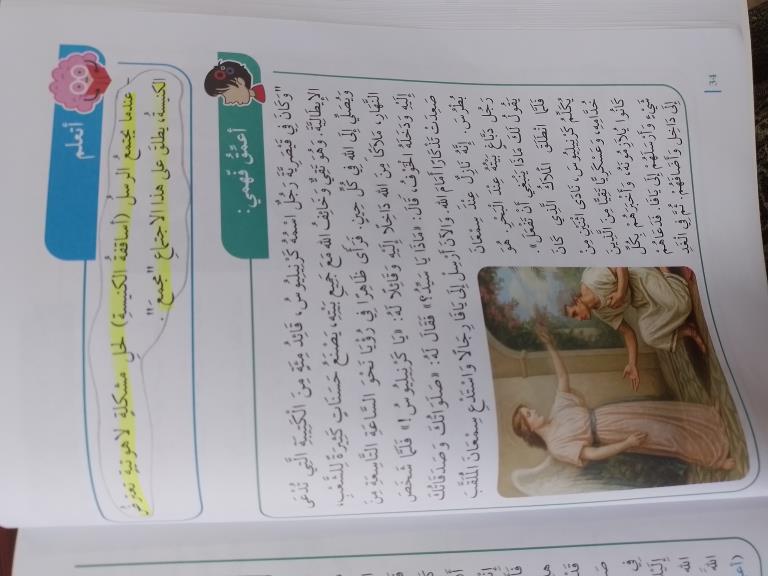 أتعلم
عندما يجتمعُ الرسلُ (أساقفةُ الكنيسةِ) لحلِّ مشكلةٍ لاهوتيةٍ تعترضُ
الكنيسةَ، يطلقُ على هذا الاجتماعِ "مجمعَ".
أعمّقُ فهمي:
"وَكَانَ فِي قَيْصَرِيَّةَ رَجُلٌ اسْمُهُ كَرْنِيلِيُوسُ، قَائِدُ مِئَةٍ مِنَ الْكَتِيبَةِ الَّتِي تُدْعَى
الإِيطَالِيَّةَ. وَهُوَ تَقِيٌّ وَخَائِفُ اللهِ مَعَ جَمِيعِ بَيْتِهِ، يَصْنَعُ حَسَنَاتٍ كَثِيرَةً لِلشَّعْبِ،
وَيُصَلِّي إِلَى اللهِ فِي كُلِّ حِينٍ. فَرَأَى ظَاهِرًا فِي رُؤْيَا نَحْوَ السَّاعَةِ التَّاسِعَةِ مِنَ
النَّهَارِ، مَلاَكًا مِنَ اللهِ دَاخِلاً إِلَيْهِ وَقَائِلاً لَهُ: «يَا كَرْنِيلِيُوسُ!» فَلَمَّا شَخَصَ
إِلَيْهِ وَدَخَلَهُ الْخَوْفُ، قَالَ: «مَاذَا يَا سَيِّدُ؟» فَقَالَ لَهُ: «صَلَوَاتُكَ وَصَدَقَاتُكَ
صَعِدَتْ تَذْكَارًا أَمَامَ اللهِ. وَالآنَ أَرْسِلْ إِلَى يَافَا رِجَالاً وَاسْتَدْعِ سِمْعَانَ الْمُلَقَّبَ
بُطْرُسَ. إِنَّهُ نَازِلٌ عِنْدَ سِمْعَانَ
رَجُلٍ دَبَّاغٍ بَيْتُهُ عِنْدَ الْبَحْرِ. هُوَ
يَقُولُ لَكَ مَاذَا يَنْبَغِي أَنْ تَفْعَلَ».
فَلَمَّا انْطَلَقَ الْمَلاَكُ الَّذِي كَانَ
يُكَلِّمُ كَرْنِيلِيُوسَ، نَادَى اثْنَيْنِ مِنْ
خُدَّامِهِ، وَعَسْكَرِيًّا تَقِيًّا مِنَ الَّذِينَ
كَانُوا يُلاَزِمُونَهُ، وَأَخْبَرَهُمْ بِكُلِّ
شَيْءٍ وَأَرْسَلَهُمْ إِلَى يَافَا فَدَعَاهُمْ
إِلَى دَاخِلٍ وَأَضَافَهُمْ. ثُمَّ فِي الْغَدِ
34